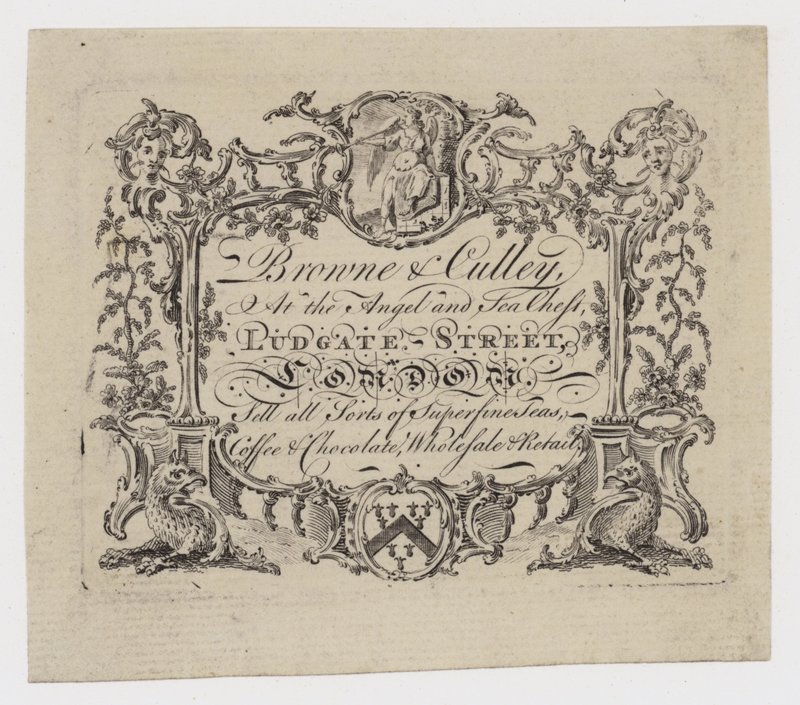 Browne & Culley,
At the Angel and Tea Chest,
LUDGATE-STREET,
LONDON.
Sell all Sorts of Superfine Teas,
Coffee & Chocolate, Wholesale & Retail.